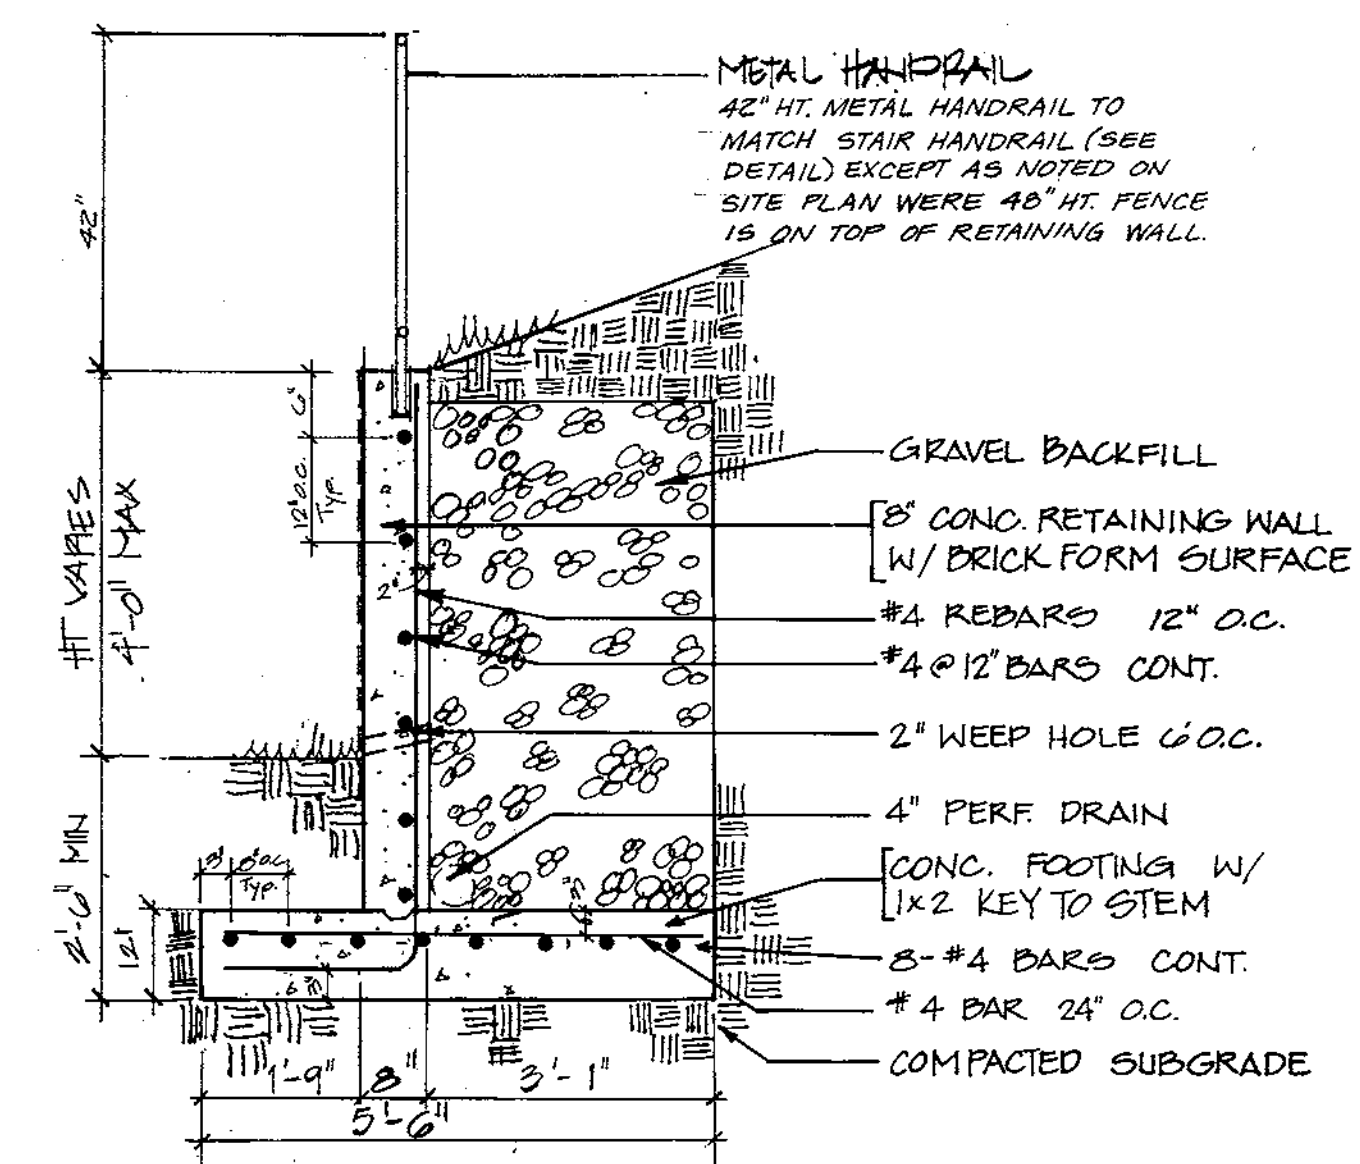 METAL HANDRAIL
42" HT. METAL HANDRAIL TO
MATCH STAIR HANDRAIL (SEE
DETAIL) EXCEPT AS NOTED ON
SITE PLAN WERE 48" HT. FENCE
IS ON TOP OF RETAINING WALL.
42"
6"
12" O.C.
Typ.
HT VARIES
4'-0" MAX
2"
GRAVEL BACKFILL
8" CONC. RETAINING WALL
W/ BRICK FORM SURFACE
#4 REBARS 12" O.C.
#4 @ 12" BARS CONT.
2" WEEP HOLE 6' O.C.
4" PERF. DRAIN
CONC. FOOTING W/
1x2 KEY TO STEM
8-#4 BARS CONT.
#4 BAR 24" O.C.
COMPACTED SUBGRADE
2'-6" MIN
12"
3"
8" O.C.
Typ.
3"
3"
1'-9"
8"
3'-1"
5'-6"